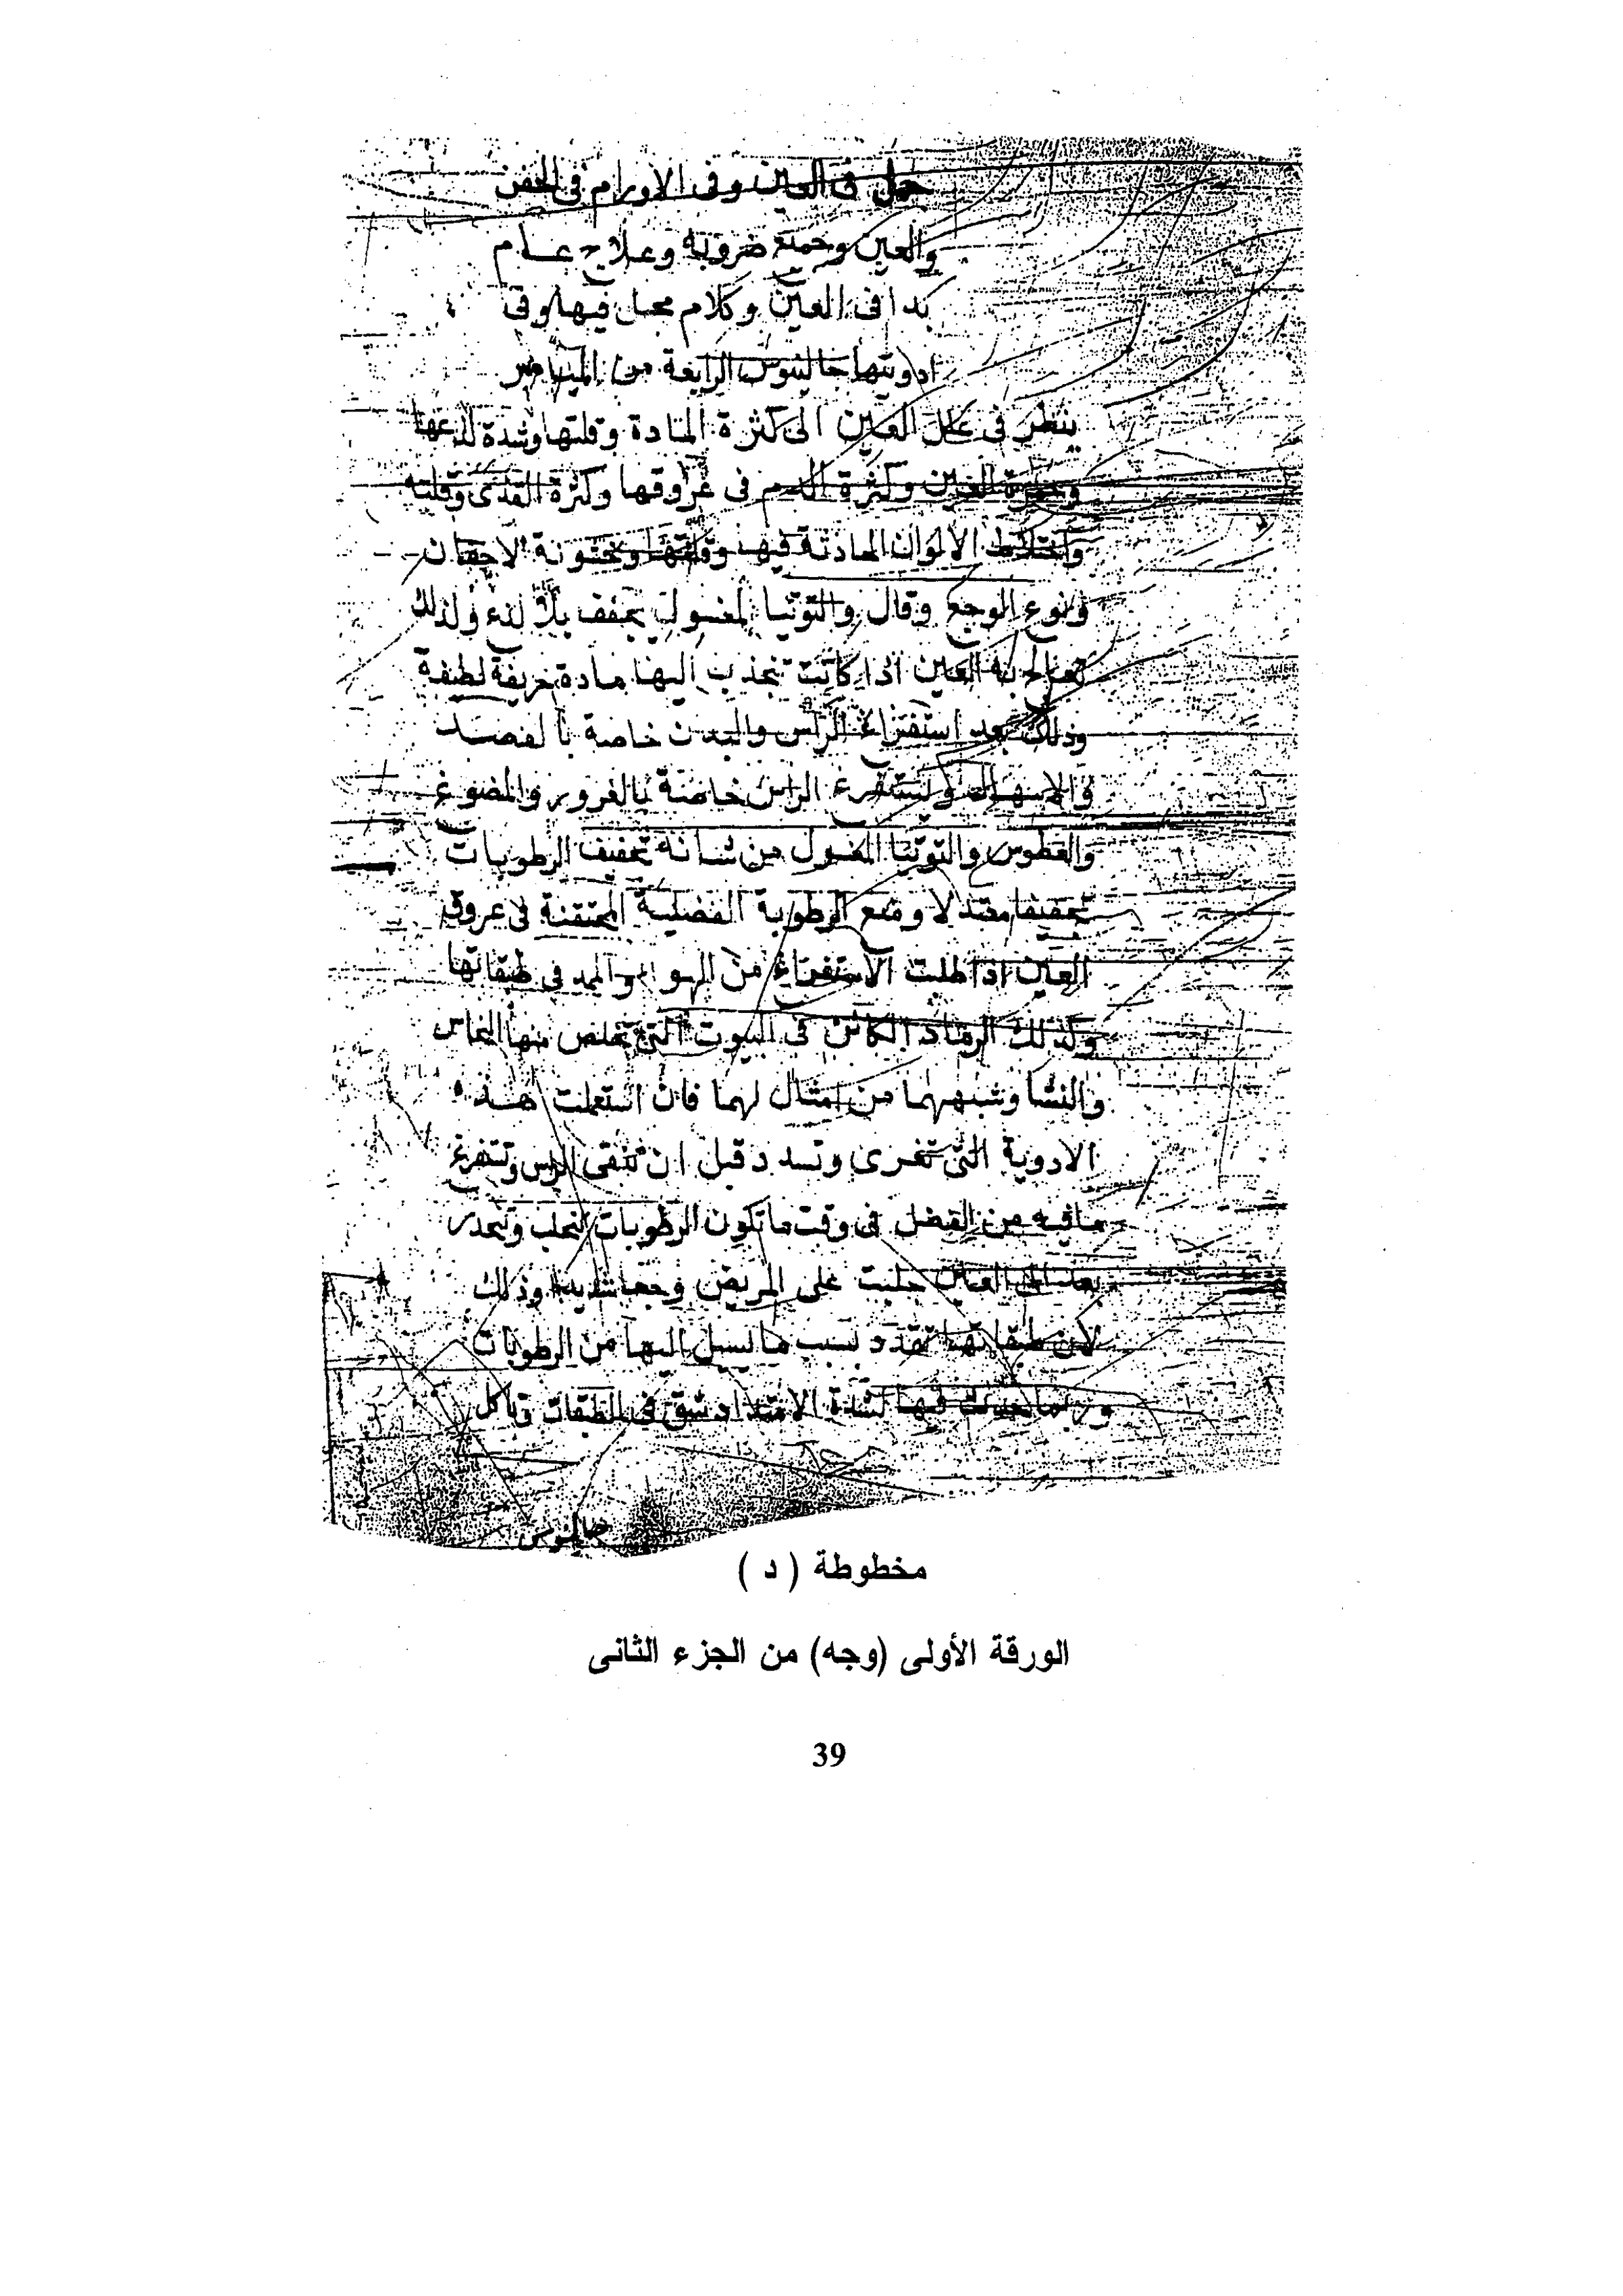 جمل فى العين وفى الاورام فى الجفن
والعين وجميع ضروبه وعلاج عام
بدا فى العين وكلام مجمل فيها وفى
ادويتها جالينوس الرابعة من الميامير
ينظر فى علل العين الى كثرة المادة وقلتها وشدة لذعها
وحمرة العين وكثرة الدم فى عروقها وكثرة القذى وقلته
واختلاط الالوان الحادثة فيها وقلتها وخشونة الاجفان
ونوع الوجع وقال والتوتيا المغسول يجفف بلا لذع ولذلك
يعالج به العين اذا كانت تنجذب اليها مادة حريفة لطيفة
وذلك بعد استفراغ الراس والبدن خاصة بالفصد
والاسهال وليستفرغ الراس خاصة بالغرور والمضوغ
والعطوس والتوتيا المغسول من شانه تجفيف الرطوبات
تجفيفا معتدلا ومنع الرطوبة الفضلية المحتقنة فى عروق
العين اذا طلبت الاستفراغ من الهوا والمد فى طبقاتها
وكذلك الرماد الكائن فى البيوت التى تخلص منها النحاس
والنشا وشبههما من امثال لهما فان استعملت هذه
الادوية التى تغرى وتسدد قبل ان تنقى الراس وتستفرغ
ما فيه من الفضل فى وقت ما تكون الرطوبات تنحلب وتنحدر
بعد الى العين جلبت على المريض وجعا شديدا وذلك
لان طبقاتها تمدد بسبب ما يسيل اليها من الرطوبات
وربما يحدث فيها لشدة الامتداد شق فى الطبقات وتاكل
جالينوس
مخطوطة ( د )
الورقة الأولى (وجه) من الجزء الثانى
39